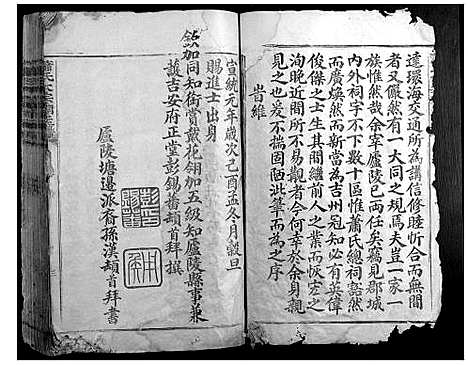 達環海交通所為講信修睦忻合而無間
者又儼然有一大同之規焉夫豈一家一
族惟然哉余宰廬陵已兩任矣竊見郡城
內外祠宇不下數十區惟蕭氏總祠谿然
而廣煥然而新當為吉州冠知必有英偉
俊傑之士生其間繼前人之業而恢宏之
洵晚近間所不易觀者今何幸於余身親
見之也爰不揣固陋此筆而為之序
旹維
宣統元年歲次己酉孟冬月穀旦
賜進士出身
欽加同知銜賞戴花翎加五級知廬陵縣事兼
護吉安府正堂彭錫蕃頓首拜撰
廬陵塘邊派裔孫漢頡首拜書